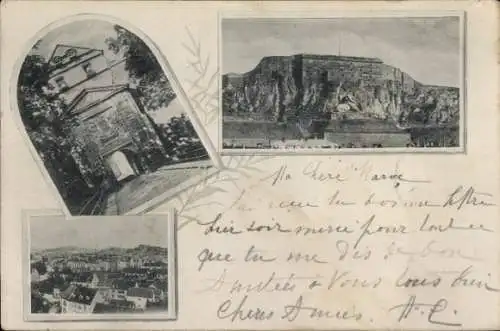 Ma Chère Marie
J'ai reçu ta bonne lettre
hier soir merci pour tout ce
que tu me dis de bon
Santées à Vous tous bien
Chers Amies. A. C.